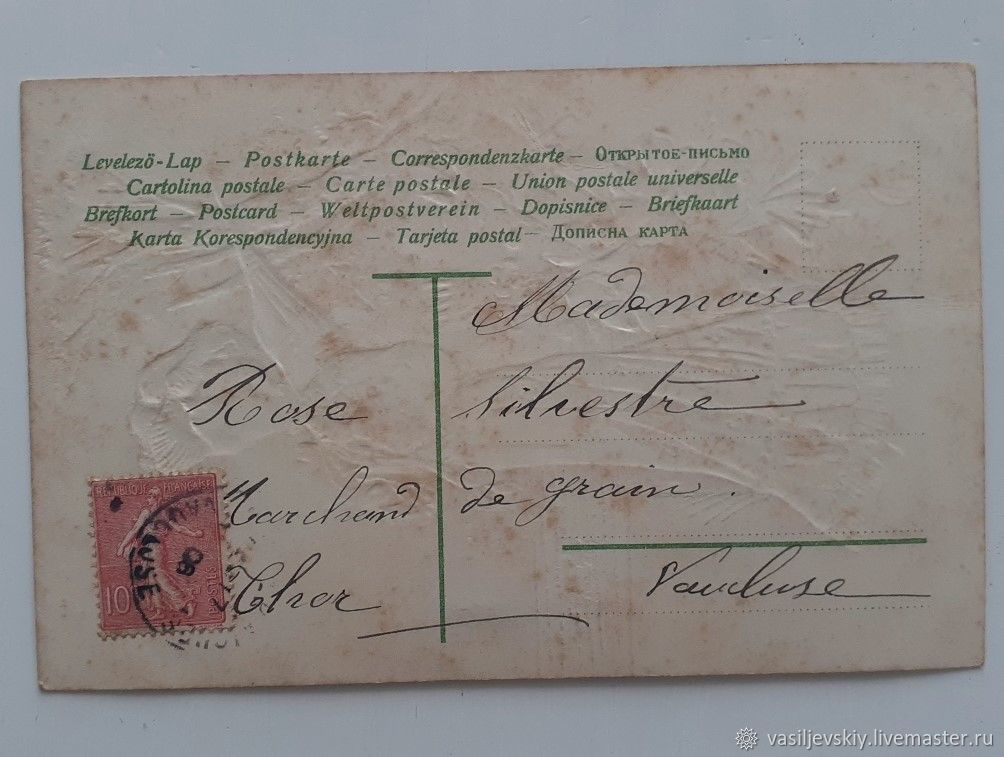 Levelező-Lap – Postkarte – Correspondenzkarte – Открытое-письмо
Cartolina postale – Carte postale – Union postale universelle
Brefkort – Postcard – Weltpostverein – Dopisnice – Briefkaart
Karta Korespondencyjna – Tarjeta postal – Дописна карта
Mademoiselle
Rose Silvestre
Marchand de grain.
Thor Vaucluse
REPUBLIQUE FRANÇAISE
10
VAUCLUSE
08
vasiljevskiy.livemaster.ru